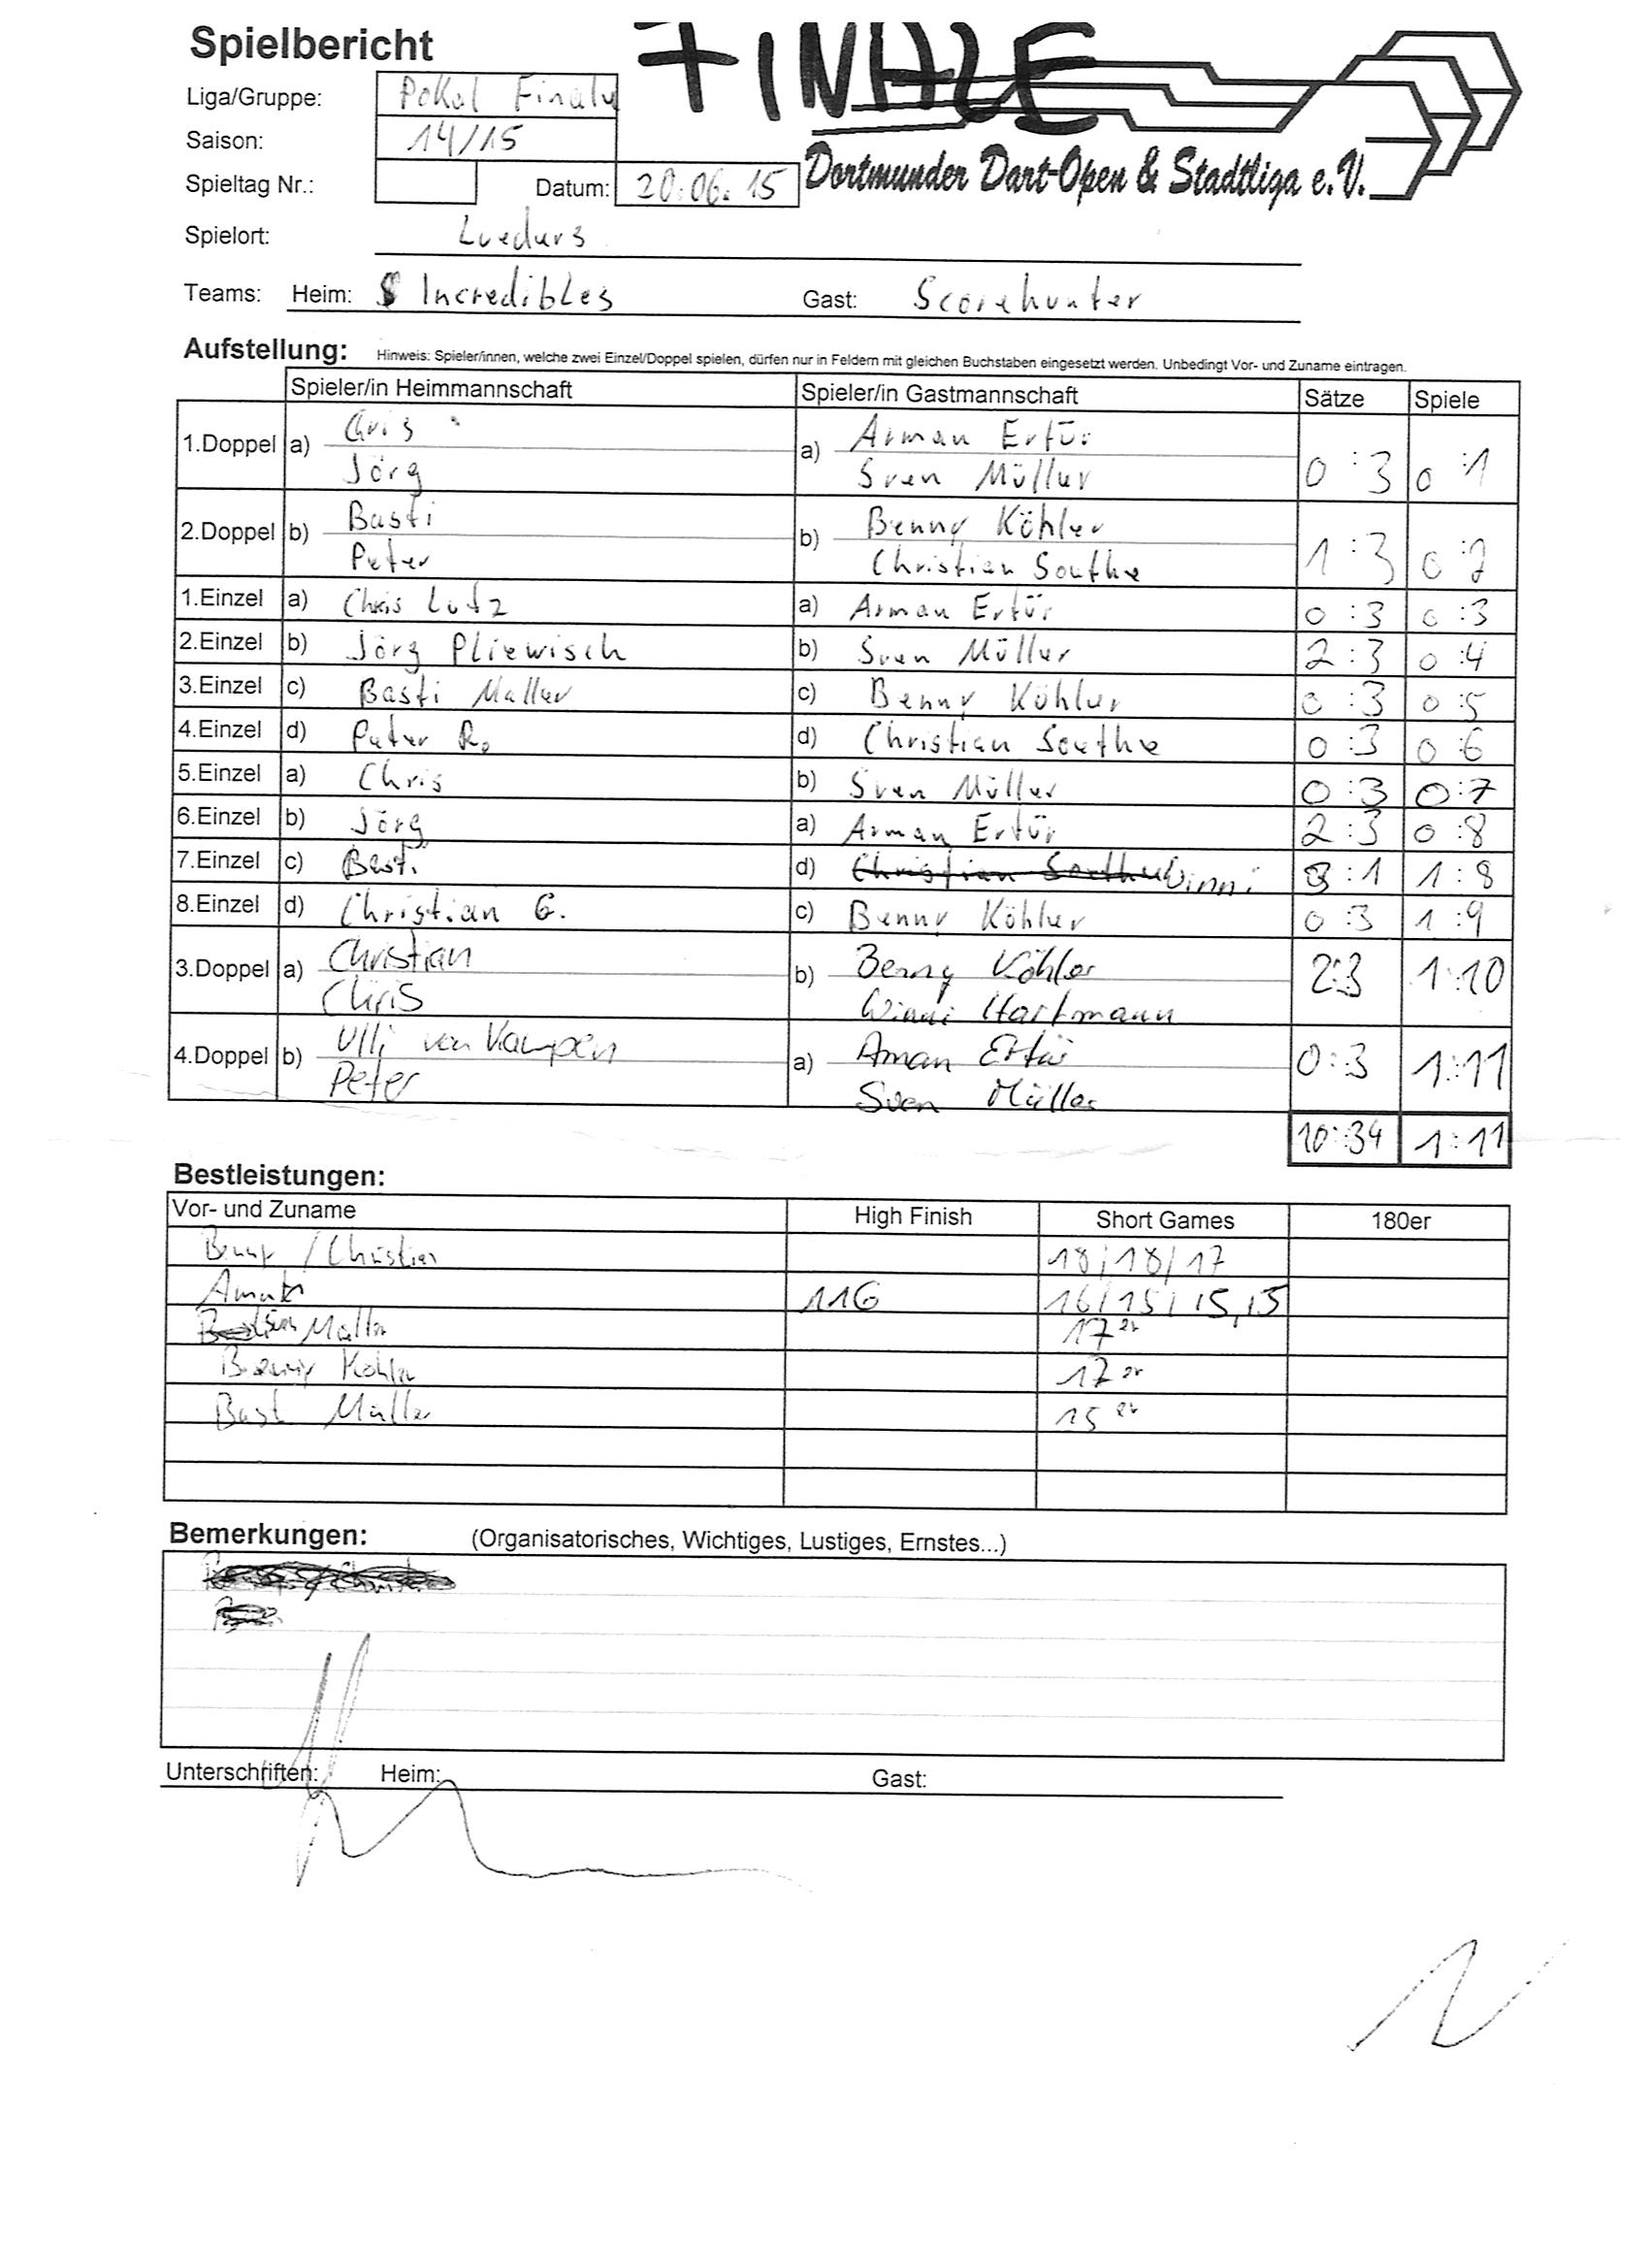 Spielbericht
FINALE
Liga/Gruppe: Pokal Finale
Saison: 14/15
Spieltag Nr.: Datum: 20.06.15
Dortmunder Dart-Open & Stadtliga e.V.
Spielort: Lueders
Teams: Heim: Incredibles Gast: Scorehunter
Aufstellung: Hinweis: Spieler/innen, welche zwei Einzel/Doppel spielen, dürfen nur in Feldern mit gleichen Buchstaben eingesetzt werden. Unbedingt Vor- und Zuname eintragen.
Spieler/in Heimmannschaft Spieler/in Gastmannschaft Sätze Spiele
1.Doppel a) Chris Jörg a) Arman Ertür Sven Müller 0:3 0:1
2.Doppel b) Basti Peter b) Benny Köhler Christian Soethe 1:3 0:2
1.Einzel a) Chris Lutz a) Arman Ertür 0:3 0:3
2.Einzel b) Jörg Pliewisch b) Sven Müller 2:3 0:4
3.Einzel c) Basti Maller c) Benny Köhler 0:3 0:5
4.Einzel d) Peter Ro d) Christian Soethe 0:3 0:6
5.Einzel a) Chris b) Sven Müller 0:3 0:7
6.Einzel b) Jörg a) Arman Ertür 2:3 0:8
7.Einzel c) Basti d) Christian Soethe Winni 3:1 1:8
8.Einzel d) Christian G. c) Benny Köhler 0:3 1:9
3.Doppel a) Christian Chris b) Benny Köhler Winni Hartmann 2:3 1:10
4.Doppel b) Ulli van Kampen Peter a) Aman Ertür Sven Müller 0:3 1:11
10:34 1:11
Bestleistungen:
Vor- und Zuname High Finish Short Games 180er
Benny / Christian 18/18/17
116 16/15/15,15
Müller 17er
Benny Köhler 17er
Basti Müller 15er
Bemerkungen: (Organisatorisches, Wichtiges, Lustiges, Ernstes...)
Unterschriften: Heim: Gast: